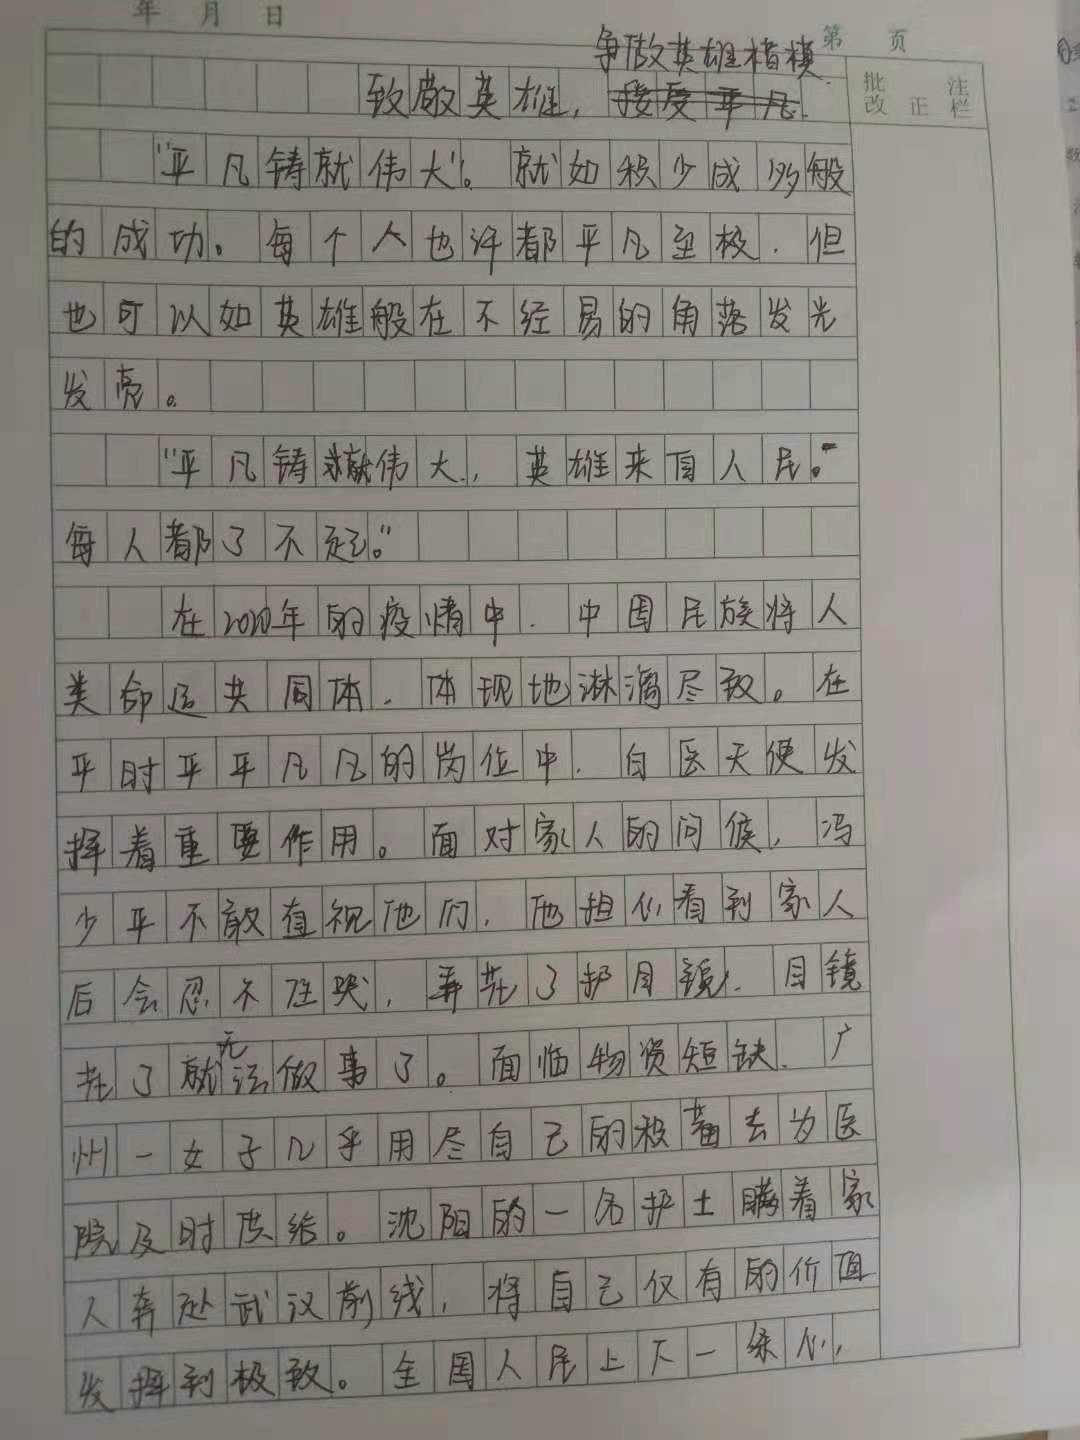 年 月 日
第 页
争做英雄楷模
致敬英雄，接受平凡.
批改 正 注栏
“平凡铸就伟大”。就如积少成多般
的成功。每个人也许都平凡至极.但
也可以如英雄般在不经易的角落发光
发亮。
“平凡铸就伟大，英雄来自人民。
每人都了不起。”
在2020年的疫情中.中国民族将人
类命运共同体.体现地淋漓尽致。在
平时平平凡凡的岗位中.白医天使发
挥着重要作用。面对家人的问候，冯
少平不敢直视他们，他担心看到家人
后会忍不住哭，弄花了护目镜.目镜
花了就无法做事了。面临物资短缺.广
州一女子几乎用尽自己的积蓄去为医
院及时供给。沈阳的一名护士瞒着家
人奔赴武汉前线，将自己仅有的价值
发挥到极致。全国人民上下一条心，